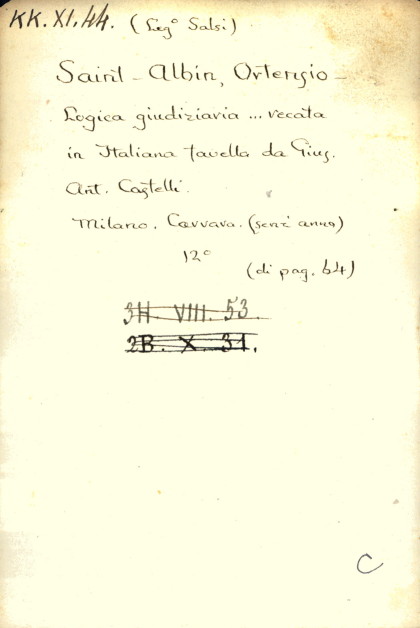 KK.XI.44. (Leg° Salsi)
Saint-Albin, Ortensio-
Logica giudiziaria ... recata
in Italiana favella da Gius.
Ant. Castelli.
Milano. Carrara. (senz' anno)
12°
(di pag. 64)
3H. VIII. 53.
2B. X. 31.
C